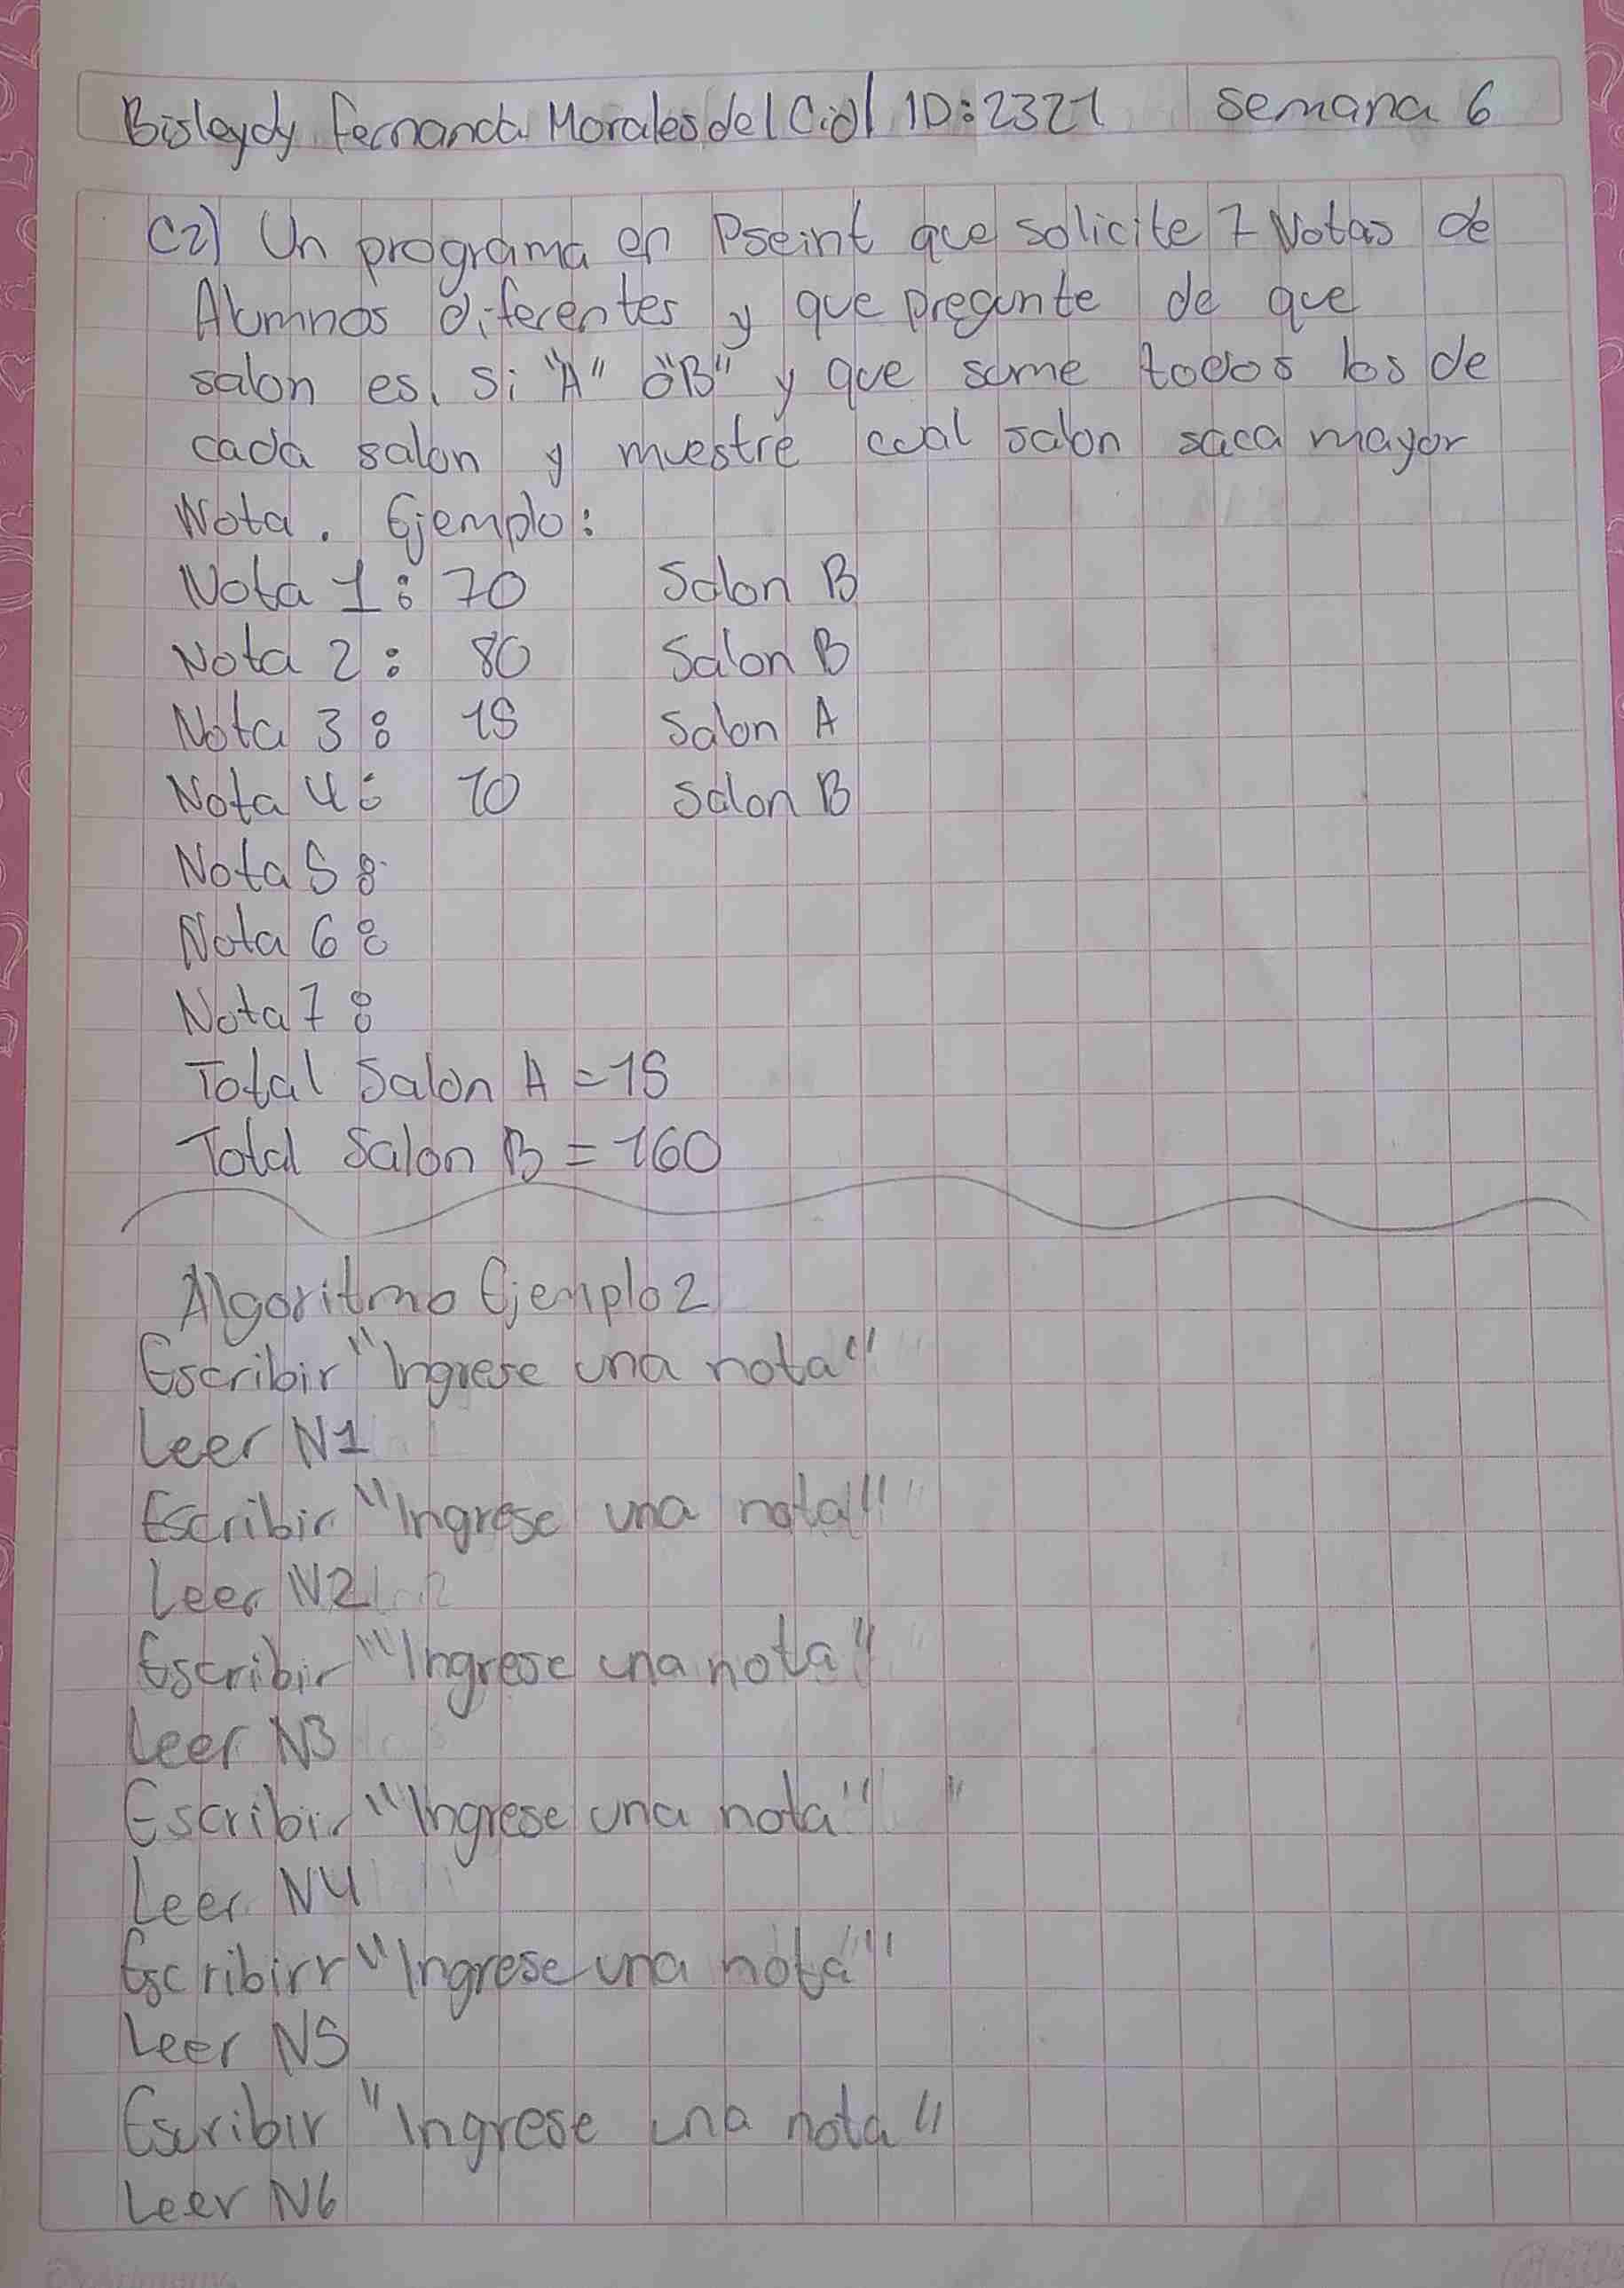 Bisleydy Fernanda Morales del Cid ID:2321 semana 6
C2) Un programa en Pseint que solicite 7 Notas de
Alumnos diferentes y que pregunte de que
salon es, si "A" o "B" y que sume todos los de
cada salon y muestre cual salon saca mayor
Nota. Ejemplo:
Nota 1: 70 Salon B
Nota 2: 80 Salon B
Nota 3: 15 Salon A
Nota 4: 10 Salon B
Nota 5:
Nota 6:
Nota 7:
Total Salon A = 15
Total Salon B = 160
Algoritmo Ejemplo2
Escribir "Ingrese una nota"
Leer N1
Escribir "Ingrese una nota"
Leer N2
Escribir "Ingrese una nota"
Leer N3
Escribir "Ingrese una nota"
Leer N4
Escribirr "Ingrese una nota"
Leer N5
Escribir "Ingrese una nota"
Leer N6